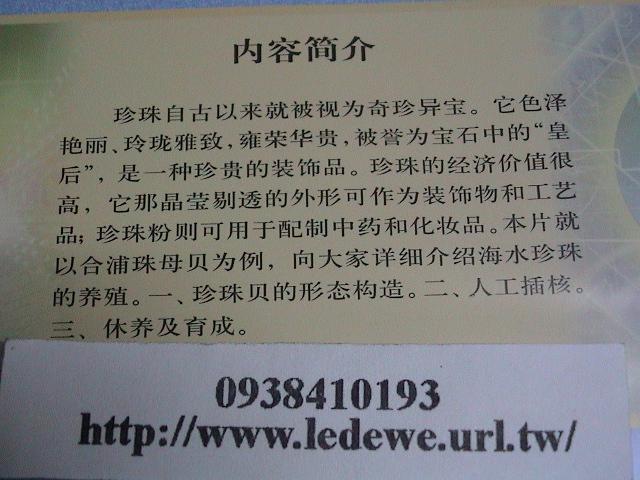 内容简介
珍珠自古以来就被视为奇珍异宝。它色泽
艳丽、玲珑雅致，雍荣华贵，被誉为宝石中的“皇
后”，是一种珍贵的装饰品。珍珠的经济价值很
高，它那晶莹剔透的外形可作为装饰物和工艺
品；珍珠粉则可用于配制中药和化妆品。本片就
以合浦珠母贝为例，向大家详细介绍海水珍珠
的养殖。一、珍珠贝的形态构造。二、人工插核。
三、休养及育成。
0938410193
http://www.ledewe.url.tw/